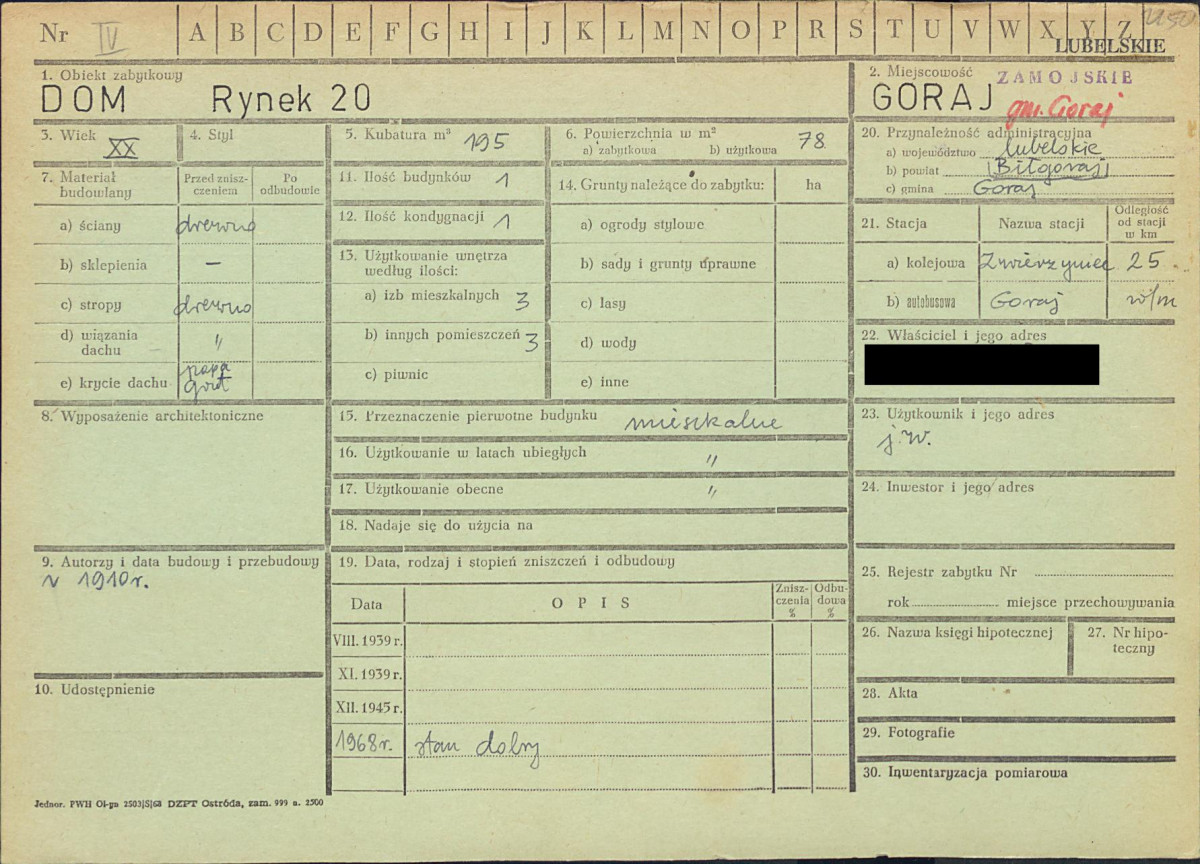 Nr IV A B C D E F G H I J K L M N O P R S T U V W X Y Z
LUBELSKIE
1. Obiekt zabytkowy
DOM Rynek 20
2. Miejscowość ZAMOJSKIE
GORAJ gm. Goraj
3. Wiek XX
4. Styl
5. Kubatura m³ 195
6. Powierzchnia w m²
a) zabytkowa b) użytkowa 78
7. Materiał budowlany
Przed zniszczeniem
Po odbudowie
a) ściany drewno
b) sklepienia –
c) stropy drewno
d) wiązania dachu "
e) krycie dachu papa gont
8. Wyposażenie architektoniczne
9. Autorzy i data budowy i przebudowy
v 1910 r.
10. Udostępnienie
11. Ilość budynków 1
12. Ilość kondygnacji 1
13. Użytkowanie wnętrza według ilości:
a) izb mieszkalnych 3
b) innych pomieszczeń 3
c) piwnic
14. Grunty należące do zabytku: ha
a) ogrody stylowe
b) sady i grunty uprawne
c) lasy
d) wody
e) inne
15. Przeznaczenie pierwotne budynku mieszkalne
16. Użytkowanie w latach ubiegłych "
17. Użytkowanie obecne "
18. Nadaje się do użycia na
19. Data, rodzaj i stopień zniszczeń i odbudowy
Data OPIS Zniszczenia % Odbudowa %
VIII. 1939 r.
XI. 1939 r.
XII. 1945 r.
1968 r. stan dobry
20. Przynależność administracyjna
a) województwo lubelskie
b) powiat Biłgoraj
c) gmina Goraj
21. Stacja Nazwa stacji Odległość od stacji w km
a) kolejowa Zwierzyniec 25
b) autobusowa Goraj w/m
22. Właściciel i jego adres
23. Użytkownik i jego adres
j.w.
24. Inwestor i jego adres
25. Rejestr zabytku Nr
rok miejsce przechowywania
26. Nazwa księgi hipotecznej
27. Nr hipoteczny
28. Akta
29. Fotografie
30. Inwentaryzacja pomiarowa
Jednor. PWH Ol-yn 2503|S|68 DZPT Ostróda, zam. 999 n. 2500